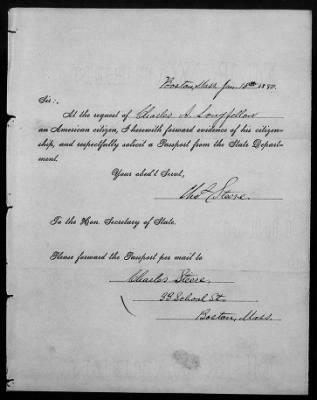 Boston, Mass. Jan 15th 1880.
Sir:
At the request of Charles A. Longfellow
an American citizen, I herewith forward evidence of his citizen-
ship, and respectfully solicit a Passport from the State Depart-
ment.
Your obed't Servt,
Steere.
To the Hon. Secretary of State.
Please forward the Passport per mail to
Charles Steere,
School St.
Boston, Mass.